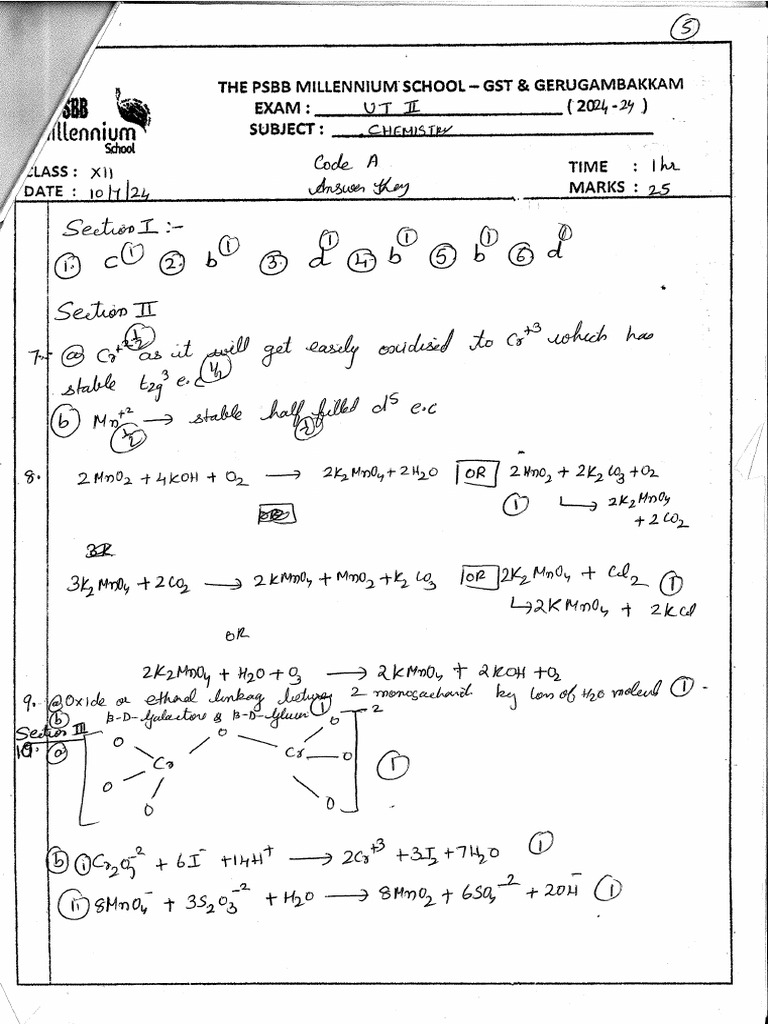 5
THE PSBB MILLENNIUM SCHOOL – GST & GERUGAMBAKKAM
EXAM : UT II ( 2024 -24 )
SUBJECT : CHEMISTRY
SBB
illennium
School
CLASS : XII Code A TIME : 1 hr
DATE : 10/7/24 Answer Key MARKS : 25
Section I :-
1. c 1 2. b 1 3. d 1 4. b 1 5. b 1 6. d 1
Section II
7. a Cr+2 1/2 as it will get easily oxidised to Cr+3 which has
stable t2g3 e.c 1/2
b Mn+2 → stable half filled d5 e.c
1/2 1/2
8. 2MnO2 + 4KOH + O2 → 2K2MnO4 + 2H2O OR 2MnO2 + 2K2CO3 + O2
1 → 2K2MnO4
+ 2CO2
3K2MnO4 + 2CO2 → 2KMnO4 + MnO2 + K2CO3 OR 2K2MnO4 + Cl2 1
→ 2KMnO4 + 2KCl
OR
2K2MnO4 + H2O + O3 → 2KMnO4 + 2KOH + O2
9. a Oxide or ethereal linkag between 2 monosacharid by loss of H2O molecul 1
b β-D-Galactose & β-D-Glucos 1
Section III
10. a [ O O Cr O O Cr O O O ] -2 1
b i Cr2O7-2 + 6I- + 14H+ → 2Cr+3 + 3I2 + 7H2O 1
ii 8MnO4- + 3S2O3-2 + H2O → 8MnO2 + 6SO4-2 + 2OH- 1